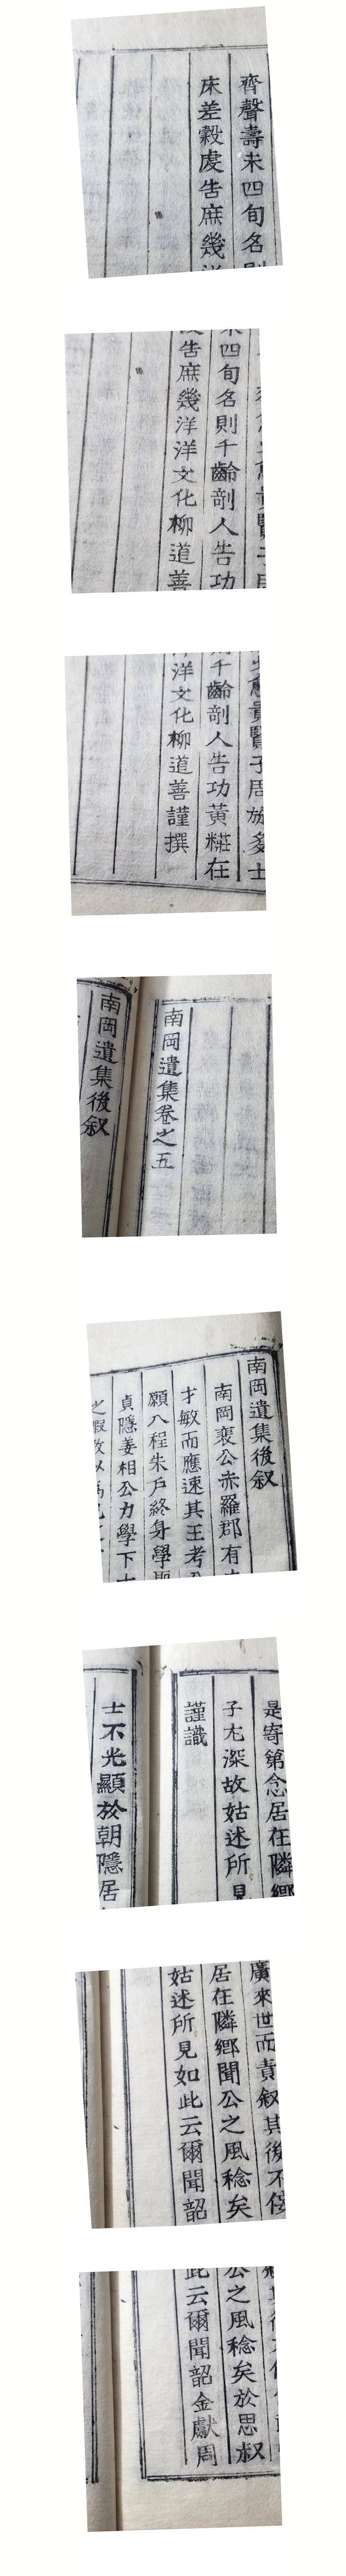 齊聲壽未四旬名則
床差穀虔告庶幾洋
四旬名則千齡剖人告功
告庶幾洋洋文化柳道善
貴賢子
千齡剖人告功黃𥺁在
洋文化柳道善謹撰
南岡遺集卷之五
南岡遺集後叙
南岡遺集後叙
南岡裵公赤羅郡有
才敏而應速其王考
願入程朱戶終身學
貞隱姜相公力學下
是寄第念居在隣鄉
子尤深故姑述所見
謹識
士不光顯於朝隱居
廣來世而責叙其後不佞
居在隣鄉聞公之風稔矣
姑述所見如此云爾聞韶
公之風稔矣於思叔
此云爾聞韶金獻周